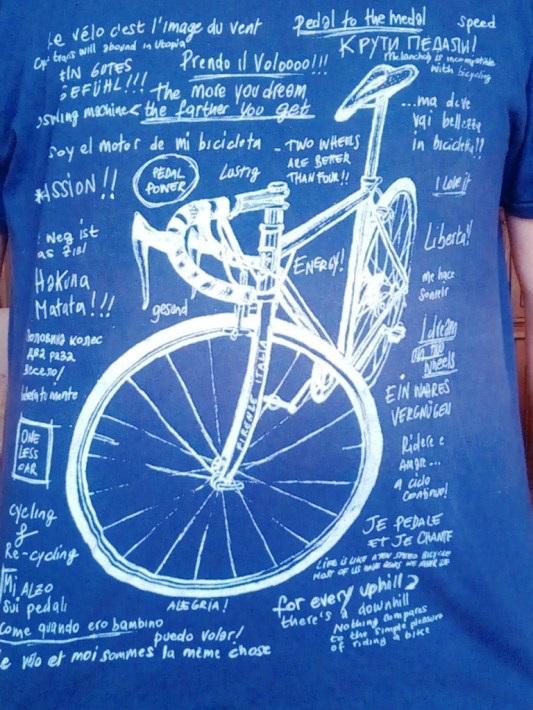 Le vélo c'est l'image du vent
Cycle trails will abound in Utopia
EIN GUTES
GEFÜHL!!!
Prendo il Voloooo!!!
the more you dream
the farther you get
Pedal to the medal
speed
КРУТИ ПЕДАЛИ!
Melancholy is incompatible
with bicycling
...ma dove
vai bellezza
in bicicletta!!
machine
Soy el motor de mi bicicleta
- TWO WHEELS
ARE BETTER
THAN FOUR!!
PEDAL
POWER
Lustig
I Love it
ASSION!!
Weg ist
as Ziel
ENERGY!
Libertá!
me hace
Sonreir
Hakuna
Matata!!!
gesund
половина колес
два раза
весело!
I dream
on two
wheels
liberatamente
FIRENZE ITALIA
EIN WAHRES
VERGNÜGEN
ONE
LESS
CAR
Ridere e
Amare...
a ciclo
continuo!
Cycling
&
Re-cycling
JE PEDALE
ET JE CHANTE
LIFE IS LIKE A TEN SPEED BICYCLE
MOST OF US HAVE GEARS WE NEVER USE
Mi ALZO
Sui pedali
ALEGRIA!
for every uphill
there's a downhill
Come quando ero bambino
puedo volar!
Nothing compares
to the simple pleasure
of riding a bike
e vélo et moi sommes la même chose